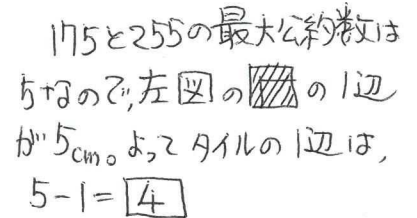 175と255の最大公約数は
5なので,左図の▨の1辺
が5cm。よってタイルの1辺は,
5-1=4